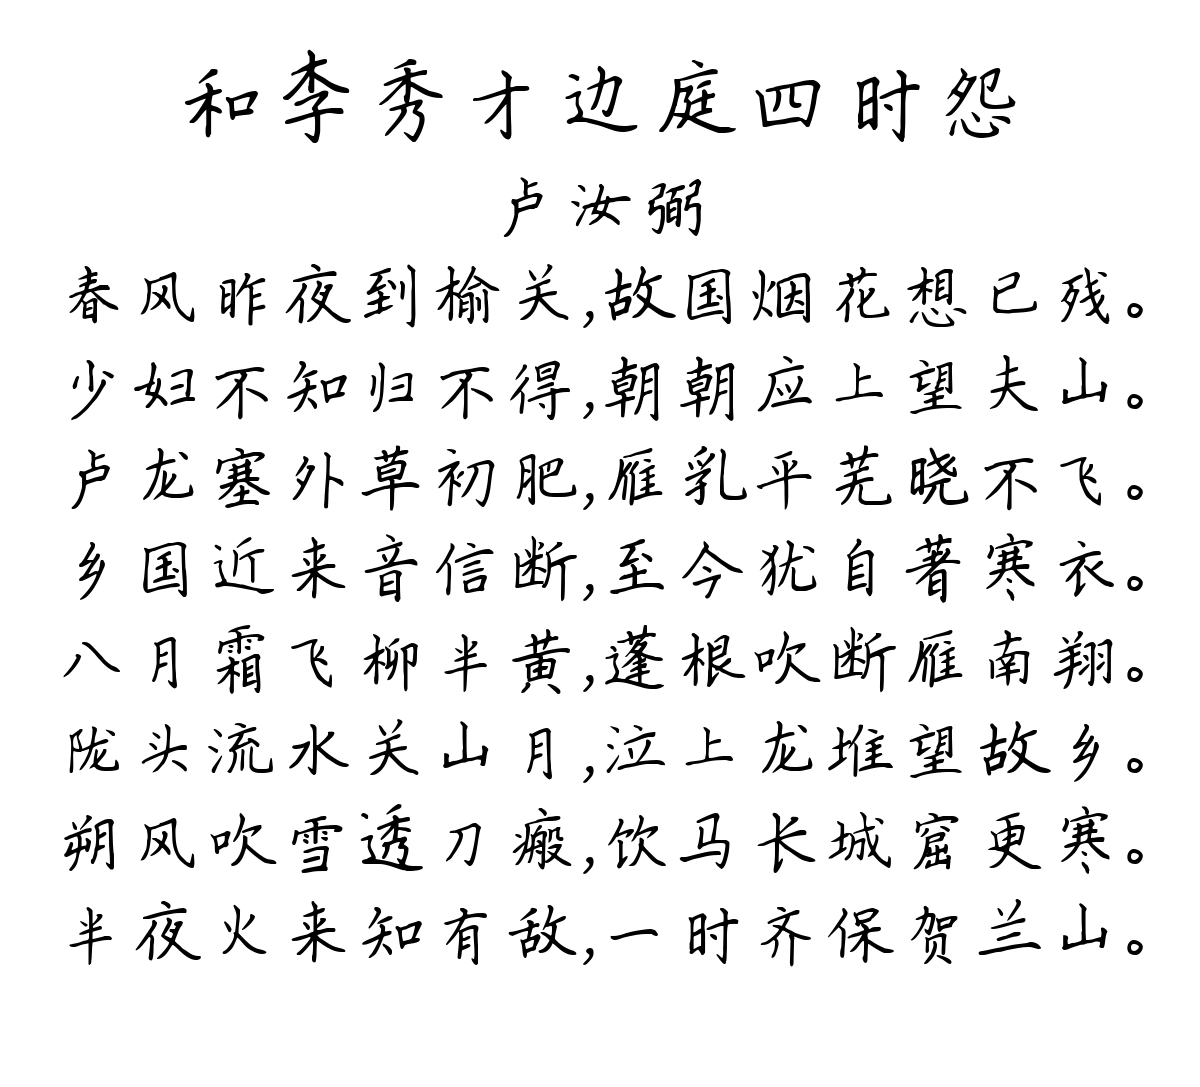 和李秀才边庭四时怨
卢汝弼
春风昨夜到榆关,故国烟花想已残。
少妇不知归不得,朝朝应上望夫山。
卢龙塞外草初肥,雁乳平芜晓不飞。
乡国近来音信断,至今犹自著寒衣。
八月霜飞柳半黄,蓬根吹断雁南翔。
陇头流水关山月,泣上龙堆望故乡。
朔风吹雪透刀瘢,饮马长城窟更寒。
半夜火来知有敌,一时齐保贺兰山。